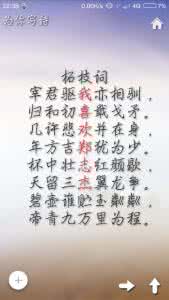 22:38
0.00K/s
4G
7%
为你写诗
柘枝词
宰君驱我亦相驯，
归和初喜戢戈矛。
几许悲欢并在身，
年方吉郑犹为少。
杯中壮志红颜歇，
天留三杰翼龙争。
碧壶谁贮玉粼粼，
帝青九万里为程。